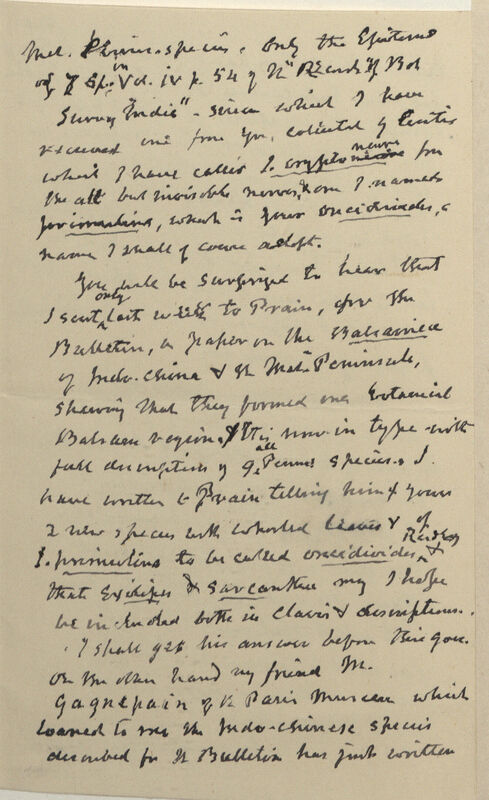 Mal. Penin. species. Only the Epitome
of y Sp: in Vol. iv p. 54 of the "Records of Bot
Survey India" - since which I have
received one from you, collected by Curtis
which I have called I. cryptoneura for
the all but invisible nerves, & one I named
, which is your oncidioides, a
name I shall of course adopt.
You will be surprized to hear that
I sent only last week to Prain, for the
Bulletin, a paper on the Balsamineae
of Indo-China & the Malay Peninsula,
shewing that they formed one botanical
Balsam region, & this is now in type with
full descriptions of all ye Penins. species. I
have written to Prain telling him of yours
2 new species with whorled leaves & of
I. to be called oncidioides Ridley &
that exilipes & sarcantha may I hope
be included both in Clavis & descriptions.
I shall get his answer before this goes.
On the other hand my friend M.
Gagnepain of the Paris Museum which
loaned to me the Indo-Chinese species
described for the Bulletin has just written